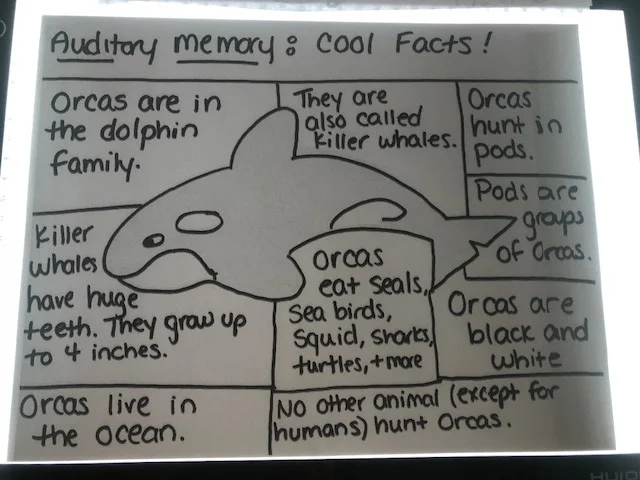 Auditory memory: Cool Facts!
Orcas are in
the dolphin
family.
They are
also called
killer whales.
Orcas
hunt in
pods.
Pods are
groups
of Orcas.
Killer
whales
have huge
teeth. They grow up
to 4 inches.
Orcas
eat seals,
Sea birds,
Squid, sharks,
turtles, + more
Orcas are
black and
white
Orcas live in
the ocean.
No other animal (except for
humans) hunt Orcas.